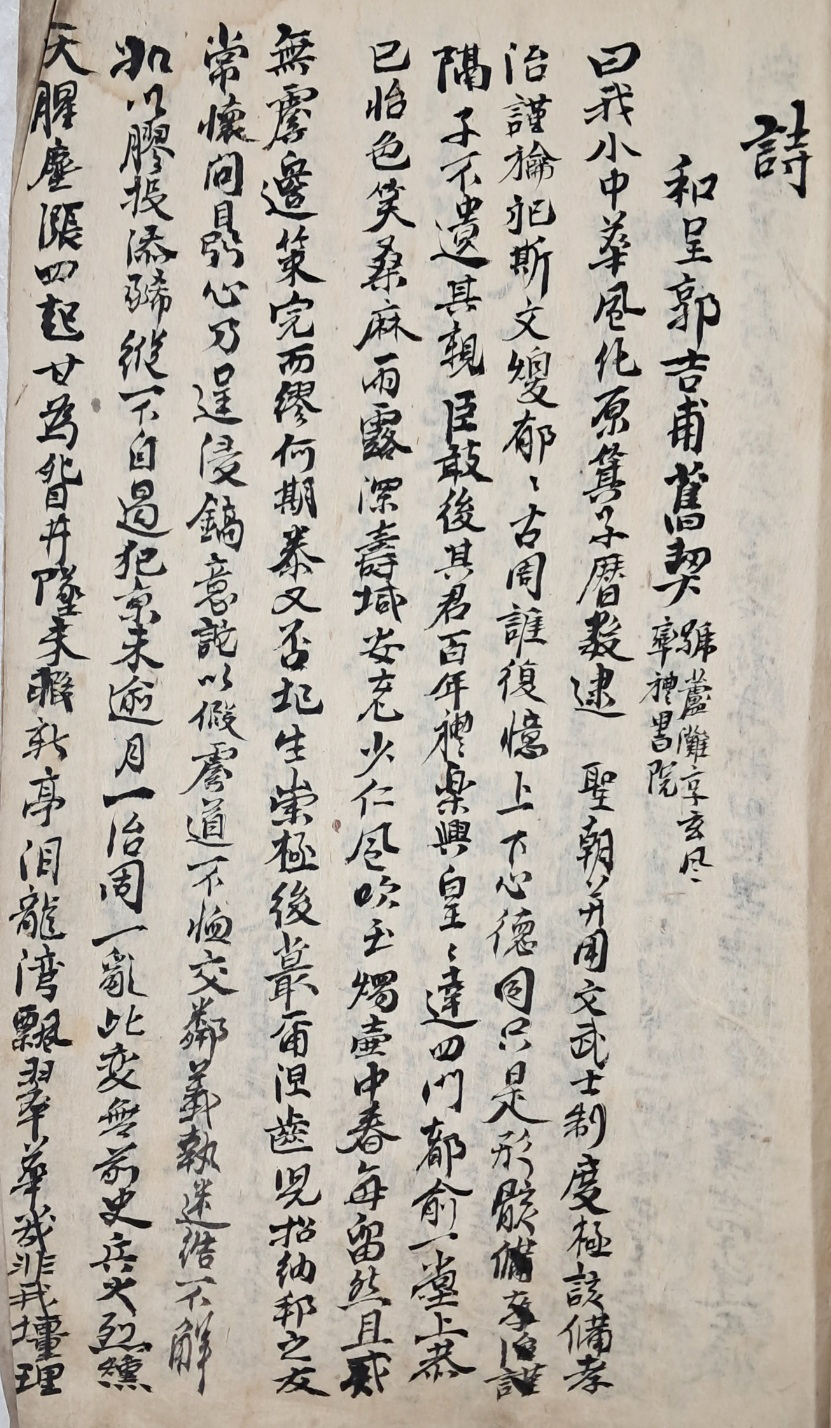 詩
和呈郭吉甫舊契 號蘆灘享玄風
率禮書院
曰我小中華風化原箕子曆數逮 聖朝并用文武士制度極該備孝
治謹倫紀斯文煥郁〻古周誰復憶上下心德同只是形骸備孝治謹
隔子不遺其親臣敢後其君百年禮樂興皇〻達四門都俞一堂上恭
已怡色笑桑麻雨露深壽域安老少仁風吹玉燭壺中春每留然且戒
無虞邊策完而繆何期泰又否圮生崇極後叢爾涅齒児招納邦之友
常懷問鼎心乃逞侵鎬意託以假虞道不恤交鄰義執迷結不解
如以膠投漆豨縱不自遏犯京未逾月一治周一亂此変無前史兵火烈燻
天腥塵漲四起廿為眢井墜未報新亭泪龍湾飄翠華哉非我壇理